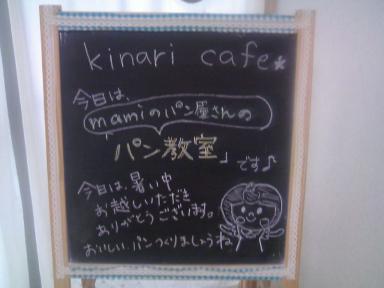 kinari cafe*
今日は、
mamiのパン屋さんの
「パン教室」です♪
今日は、暑い中
お越しいただき
ありがとうございます。
おいしいパンつくりましょうね